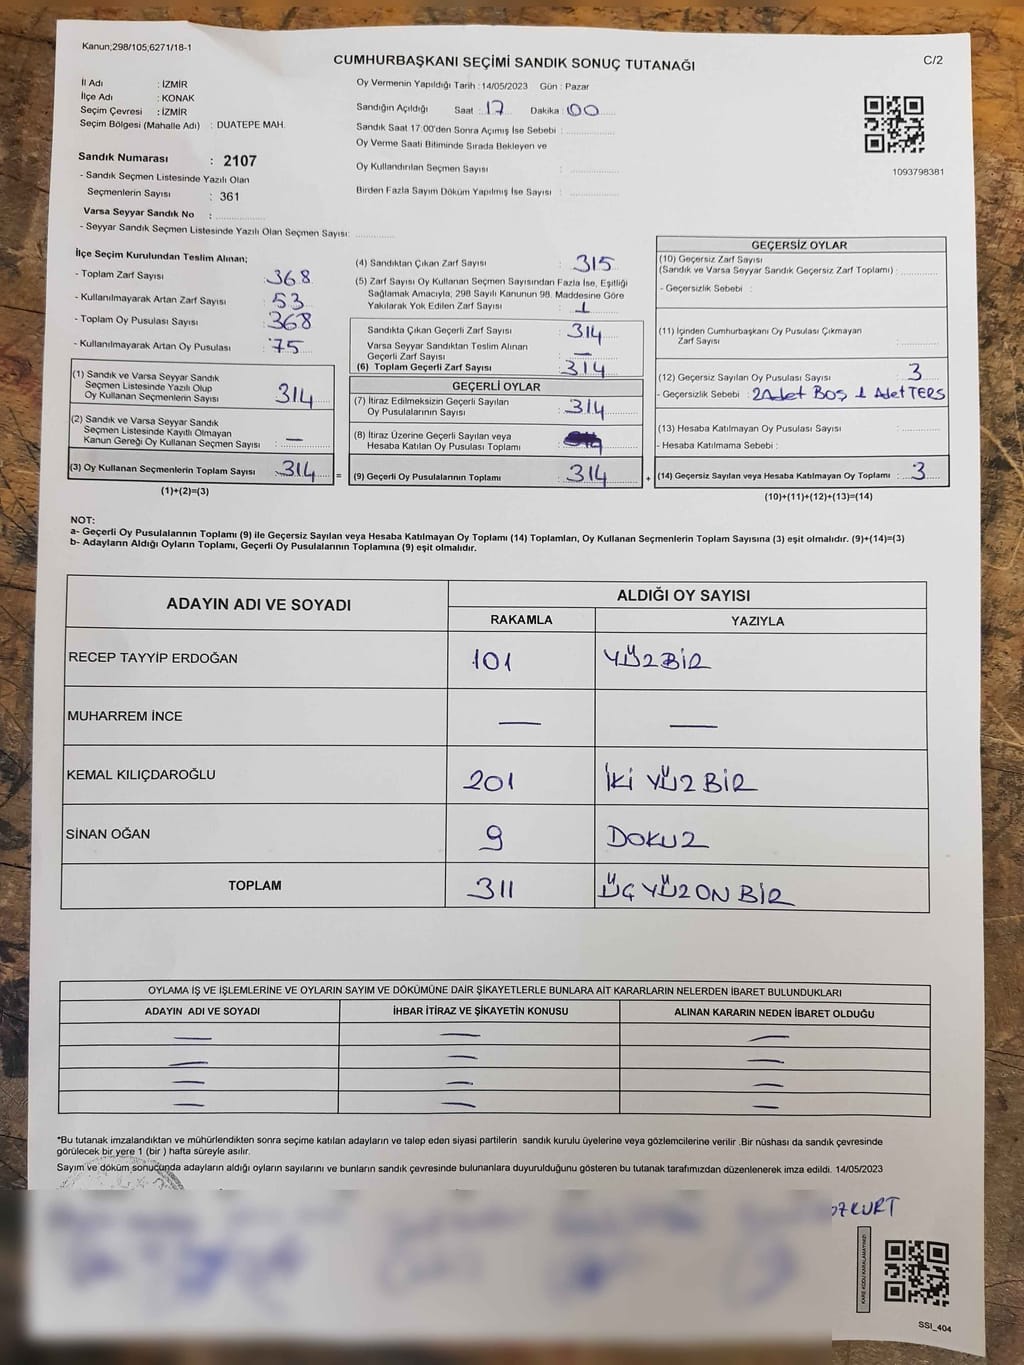 Kanun;298/105,6271/18-1
CUMHURBAŞKANI SEÇİMİ SANDIK SONUÇ TUTANAĞI
C/2
İl Adı : İZMİR
İlçe Adı : KONAK
Seçim Çevresi : İZMİR
Seçim Bölgesi (Mahalle Adı) : DUATEPE MAH.
Sandık Numarası : 2107
- Sandık Seçmen Listesinde Yazılı Olan
Seçmenlerin Sayısı : 361
Varsa Seyyar Sandık No : ................
- Seyyar Sandık Seçmen Listesinde Yazılı Olan Seçmen Sayısı: ............
Oy Vermenin Yapıldığı Tarih : 14/05/2023 Gün : Pazar
Sandığın Açıldığı Saat : 17 Dakika : 00
Sandık Saat 17:00'den Sonra Açımış İse Sebebi : ................
Oy Verme Saati Bitiminde Sırada Bekleyen ve
Oy Kullandırılan Seçmen Sayısı : ................
Birden Fazla Sayım Döküm Yapılmış İse Sayısı : ................
1093798381
İlçe Seçim Kurulundan Teslim Alınan;
- Toplam Zarf Sayısı : 368
- Kullanılmayarak Artan Zarf Sayısı : 53
- Toplam Oy Pusulası Sayısı : 368
- Kullanılmayarak Artan Oy Pusulası : 75
(1) Sandık ve Varsa Seyyar Sandık
Seçmen Listesinde Yazılı Olup
Oy Kullanan Seçmenlerin Sayısı : 314
(2) Sandık ve Varsa Seyyar Sandık
Seçmen Listesinde Kayıtlı Olmayan
Kanun Gereği Oy Kullanan Seçmen Sayısı : —
(3) Oy Kullanan Seçmenlerin Toplam Sayısı : 314 =
(1)+(2)=(3)
(4) Sandıktan Çıkan Zarf Sayısı : 315
(5) Zarf Sayısı Oy Kullanan Seçmen Sayısından Fazla İse, Eşitliği
Sağlamak Amacıyla; 298 Sayılı Kanunun 98. Maddesine Göre
Yakılarak Yok Edilen Zarf Sayısı : 1
Sandıkta Çıkan Geçerli Zarf Sayısı : 314
Varsa Seyyar Sandıktan Teslim Alınan
Geçerli Zarf Sayısı : —
(6) Toplam Geçerli Zarf Sayısı : 314
GEÇERLİ OYLAR
(7) İtiraz Edilmeksizin Geçerli Sayılan
Oy Pusulalarının Sayısı : 314
(8) İtiraz Üzerine Geçerli Sayılan veya
Hesaba Katılan Oy Pusulaları Toplamı :
(9) Geçerli Oy Pusulalarının Toplamı : 314 +
GEÇERSİZ OYLAR
(10) Geçersiz Zarf Sayısı
(Sandık ve Varsa Seyyar Sandık Geçersiz Zarf Toplamı) : ............
- Geçersizlik Sebebi :
(11) İçinden Cumhurbaşkanı Oy Pusulası Çıkmayan
Zarf Sayısı : ............
(12) Geçersiz Sayılan Oy Pusulası Sayısı : 3
- Geçersizlik Sebebi : 2 Adet BOŞ 1 Adet TERS
(13) Hesaba Katılmayan Oy Pusulası Sayısı : ............
- Hesaba Katılmama Sebebi :
(14) Geçersiz Sayılan veya Hesaba Katılmayan Oy Toplamı : 3
(10)+(11)+(12)+(13)=(14)
NOT:
a- Geçerli Oy Pusulalarının Toplamı (9) ile Geçersiz Sayılan veya Hesaba Katılmayan Oy Toplamı (14) Toplamları, Oy Kullanan Seçmenlerin Toplam Sayısına (3) eşit olmalıdır. (9)+(14)=(3)
b- Adayların Aldığı Oyların Toplamı, Geçerli Oy Pusulalarının Toplamına (9) eşit olmalıdır.
ADAYIN ADI VE SOYADI
ALDIĞI OY SAYISI
RAKAMLA YAZIYLA
RECEP TAYYİP ERDOĞAN 101 YÜZ BİR
MUHARREM İNCE — —
KEMAL KILIÇDAROĞLU 201 İKİ YÜZ BİR
SİNAN OĞAN 9 DOKUZ
TOPLAM 311 ÜÇ YÜZ ON BİR
OYLAMA İŞ VE İŞLEMLERİNE VE OYLARIN SAYIM VE DÖKÜMÜNE DAİR ŞİKAYETLERLE BUNLARA AİT KARARLARIN NELERDEN İBARET BULUNDUKLARI
ADAYIN ADI VE SOYADI İHBAR İTİRAZ VE ŞİKAYETİN KONUSU ALINAN KARARIN NEDEN İBARET OLDUĞU
— — —
— — —
— — —
— — —
*Bu tutanak imzalandıktan ve mühürlendikten sonra seçime katılan adayların ve talep eden siyasi partilerin sandık kurulu üyelerine veya gözlemcilerine verilir .Bir nüshası da sandık çevresinde
görülecek bir yere 1 (bir ) hafta süreyle asılır.
Sayım ve döküm sonucunda adayların aldığı oyların sayılarını ve bunların sandık çevresinde bulunanlara duyurulduğunu gösteren bu tutanak tarafımızdan düzenlenerek imza edildi. 14/05/2023
KARE KODU KARALAMAYINIZ!
SSI_404